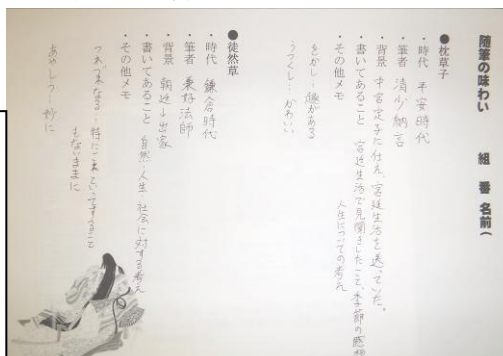 随筆の味わい　組　番 名前(
●枕草子
・時代　平安時代
・筆者　清少納言
・背景　中宮定子に仕え、宮廷生活を送っていた。
・書いてあること　宮廷生活で見聞きしたこと、季節の感想
人生についての考え
・その他メモ
をかし…趣がある
うつくし…かわいい
●徒然草
・時代　鎌倉時代
・筆者　兼好法師
・背景　朝廷→出家
・書いてあること　自然・人生・社会に対する考え
・その他メモ
つれづれなる…特にこれといってすること
もないままに
あやしう…妙に